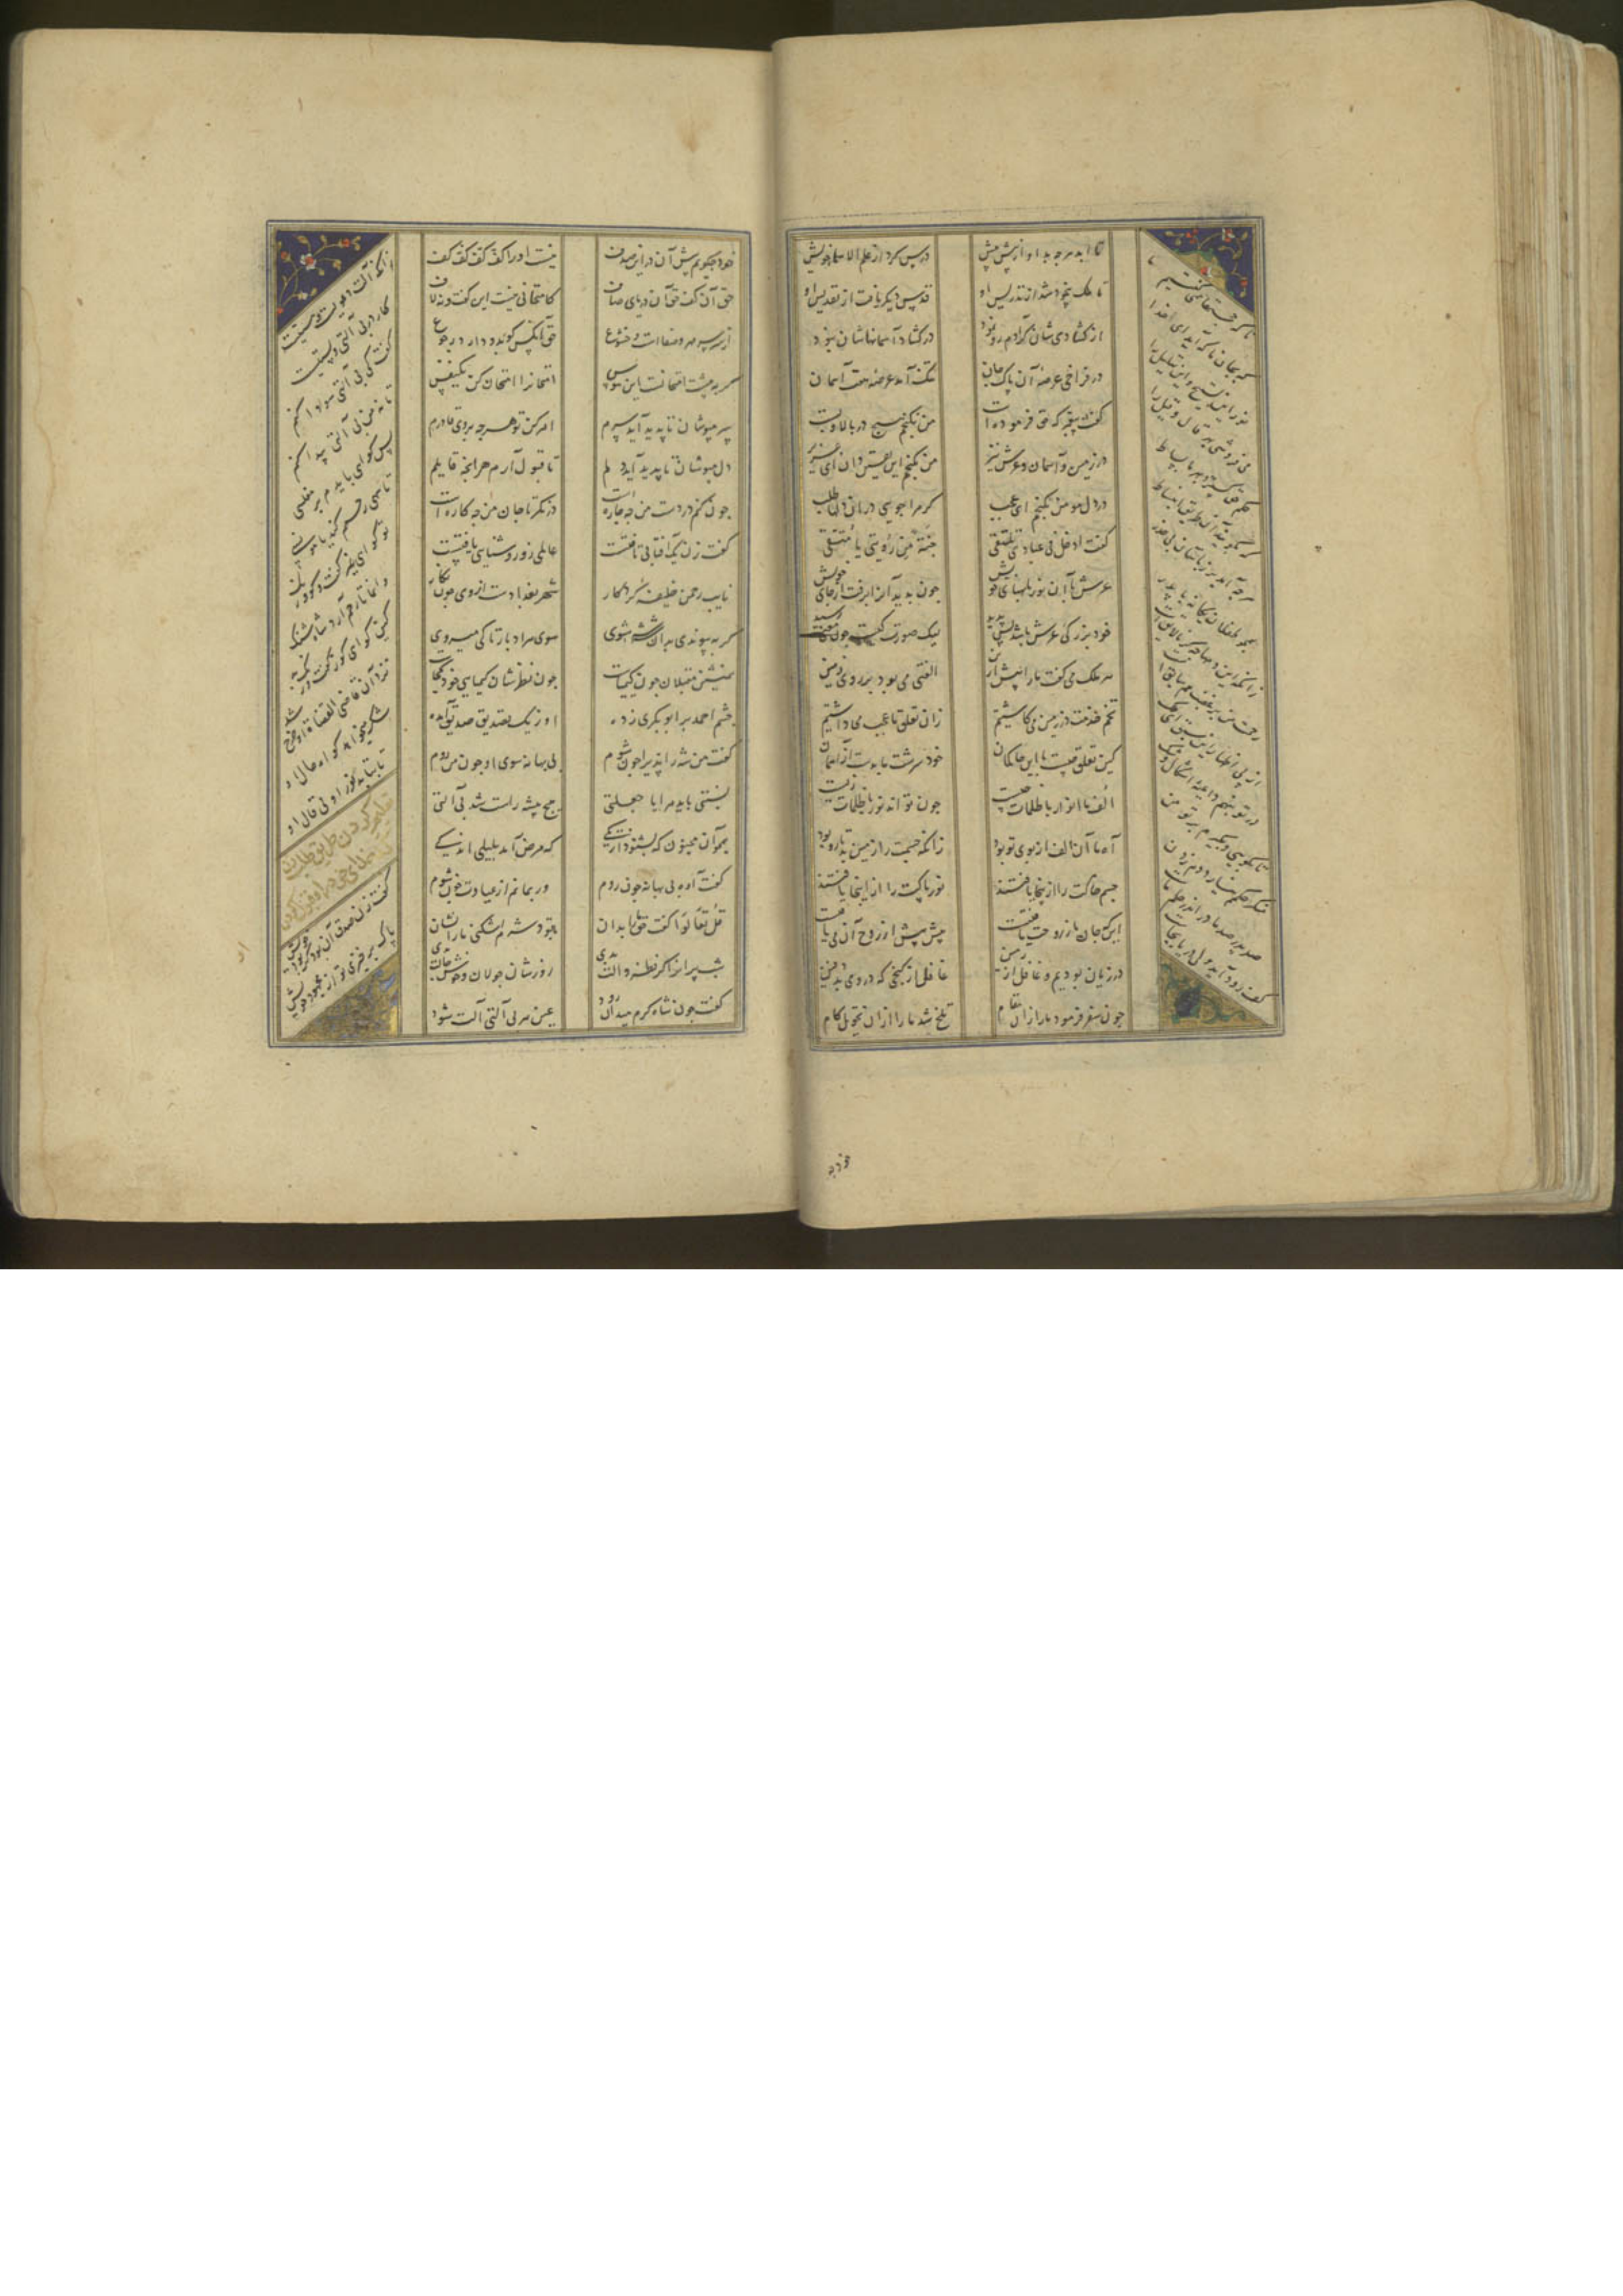 تا ابد هرچه بد او از پیش پیش درس کرد از علم الاسما خویش
تا ملک بیخود شد از تدریس او قدس دیگر یافت از تقدیس او
از گشادی شان کز آدم رو نمود در گشاد آسمانهاشان نبود
در فراخی عرصهٔ آن پاک جان تنگ آمد عرصهٔ هفت آسمان
گفت پیغمبر که حق فرموده است من نگنجم هیچ در بالا و پست
در زمین و آسمان و عرش نیز من نگنجم این یقین دان ای عزیز
در دل مومن بگنجم ای عجب گر مرا جویی در ان دلها طلب
گفت ادخل فی عبادی تلتقی جنة من رؤیتی یا متقی
عرش با آن نور با پهنای خویش چون بدید آنرا برفت از جای خویش
خود بزرگی عرش باشد بس پدید لیک صورت کیست چون معنی رسید
هر ملک می گفت ما را پیش ازین الفتی می بود بر روی زمین
تخم خدمت در زمین می کاشتیم زان تعلق ما عجب می داشتیم
کین تعلق چیست با این خاکمان خود سرشت ما بدست از آسمان
الف ما انوار با ظلمات چیست چون تواند نور با ظلمات زیست
آدما آن الف از بوی تو بود زانکه جسمت را زمین بد تار و پود
جسم خاکت را از اینجا بافتند نور پاکت را از اینجا یافتند
این که جان ما ز روحت یافتست پیش پیش از روح آن می یافتست
در زمین بودیم و غافل از زمین غافل از گنجی که در وی بد دفین
چون سفر فرمود ما را زان مقام تلخ شد ما را از ان تحویل کام
تا که حجتها همی گفتیم ما
که بجای ما که آید ای خدا
نور این تسبیح و این تهلیل را
می فروشی بهر قال و قیل را
حکم حق گسترد بهر ما بساط
که بگویید از طریق انبساط
هرچه آید بر زبانتان بی حذر
همچو طفلان یگانه با پدر
زانکه این دمها چه گر نالایقست
رحمت من بر غضب هم سابقست
از پی اظهار این سبق ای ملک
در تو بنهم داعیهٔ اشکال و شک
تا بگویی و نگیرم بر تو من
منکر حلمم نیارد دم زدن
صد پدر صد مادر اندر حلم ما
کف رود آید ولی دریا بجاست
خود چه
خود چگویم پیش آن در این صدف نیست او را کف کف کف کف
حق آن کف حق آن دریای صاف کامتحانی نیست این گفت و نه لاف
از سر مهر و صفا است و خضوع حق آنکس که بدو دارد رجوع
گر به پیشت امتحانست این هوس امتحانرا امتحان کن یکنفس
سر مپوشان تا پدید آید سرم امر کن تو هرچه بر وی قادرم
دل مپوشان تا پدید آید دلم تا قبول آرم هر آنچه قابلم
چون کنم در دست من چه چاره است در نگر تا جان من چه کاره است
گفت زن یک آفتابی تافتست عالمی زو روشنایی یافتست
نایب رحمن خلیفهٔ کردگار شهر بغدادست از وی چون بهار
گر بپیوندی بدان شه شه شوی سوی هر ادبار تا کی میروی
همنشینی مقبلان چون کیمیاست چون نظرشان کیمیایی خود کجاست
چشم احمد بر ابوبکری زده او ز یک تصدیق صدیق آمده
گفت من شه را پذیرا چون شوم بی بهانه سوی او چون من روم
نسبتی باید مرا یا حیلتی هیچ پیشه راست شد بی آلتی
همچو آن مجنون که بشنود از یکی که مرض آمد بلیلی اندکی
گفت آوه بی بهانه چون روم ور بمانم از عیادت چون شوم
قل تعالوا گفت حق ما را بدان تا بود شرم اشکنی ما را نشان
شب پرانرا گر نظر و آلت بدی روزشان جولان و خوش حالت بدی
گفت چون شاه کرم میدان رود عین هر بی آلتی آلت شود
زانکه آلت دعویست و هستیست
کار در بی آلتی و پستیست
گفت کی بی آلتی سودا کنم
تا نه من بی آلتی پیدا کنم
پس گواهی بایدم بر مفلسی
تو گواهی غیر گفت و گو و رنگ
وانما تا رحم آرد شاه شنگ
کین گواهی که ز گفت و رنگ بد
نزد آن قاضی القضاة او جرح شد
تا بتابد نور او بی قال او
گفت زن صدق آن بود کز بود خویش
پاک برخیزی تو از مجهود خویش